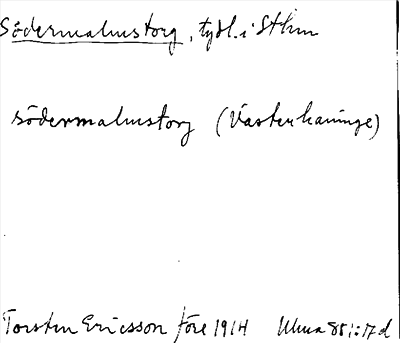 Södermalmstorg, tydl. i Sthm
södermalmstorg (Västerhaninge)
Torsten Ericsson före 1914 Ulma 85::17d